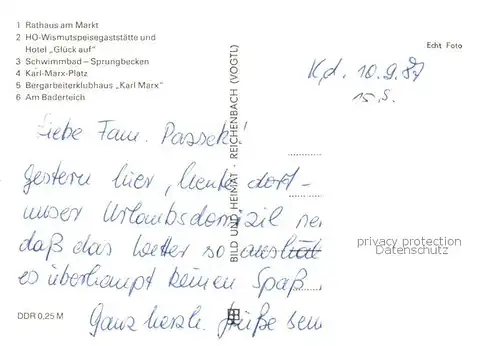 1 Rathaus am Markt
2 HO-Wismutspeisegaststätte und
Hotel „Glück auf"
3 Schwimmbad – Sprungbecken
4 Karl-Marx-Platz
5 Bergarbeiterklubhaus „Karl Marx"
6 Am Baderteich
Echt Foto
Kd. 10.9.87
15.S.
Liebe Fam. Passek!
gestern hier, heute dort –
unser Urlaubsdomizil
daß das Wetter so
es überhaupt keinen Spaß
Ganz herzl. Grüße
BILD UND HEIMAT · REICHENBACH (VOGTL)
privacy protection
Datenschutz
DDR 0,25 M